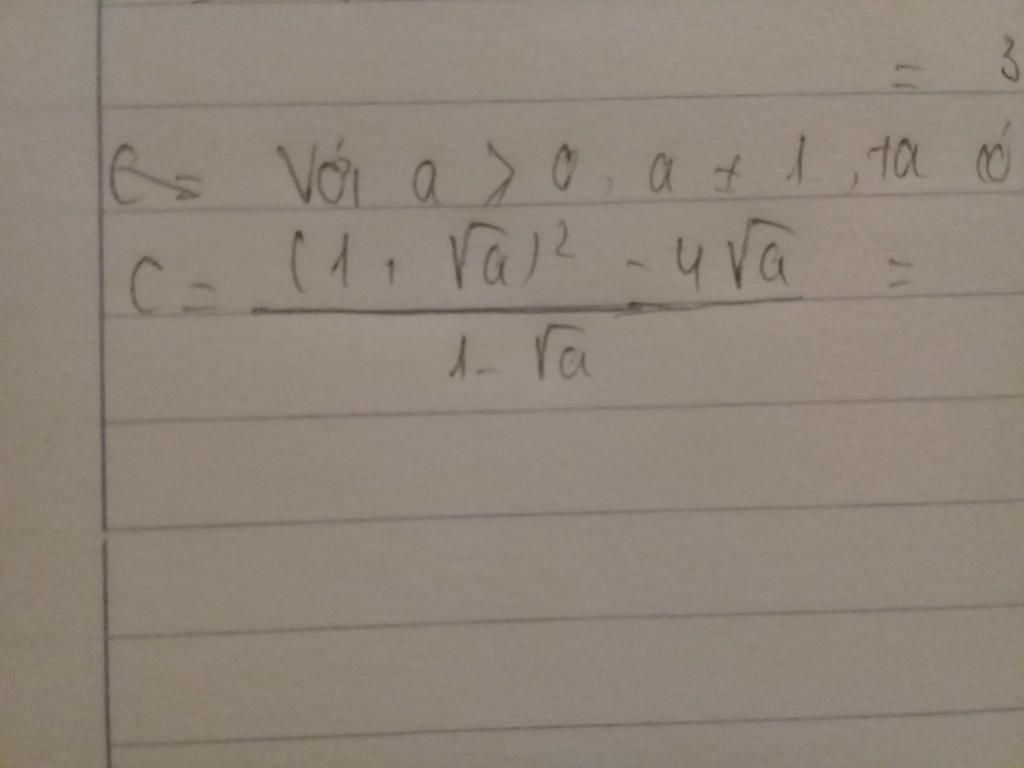 = 3
Với a > 0, a ≠ 1, ta có
C = \frac{(1 + \sqrt{a})^2 - 4\sqrt{a}}{1 - \sqrt{a}} =